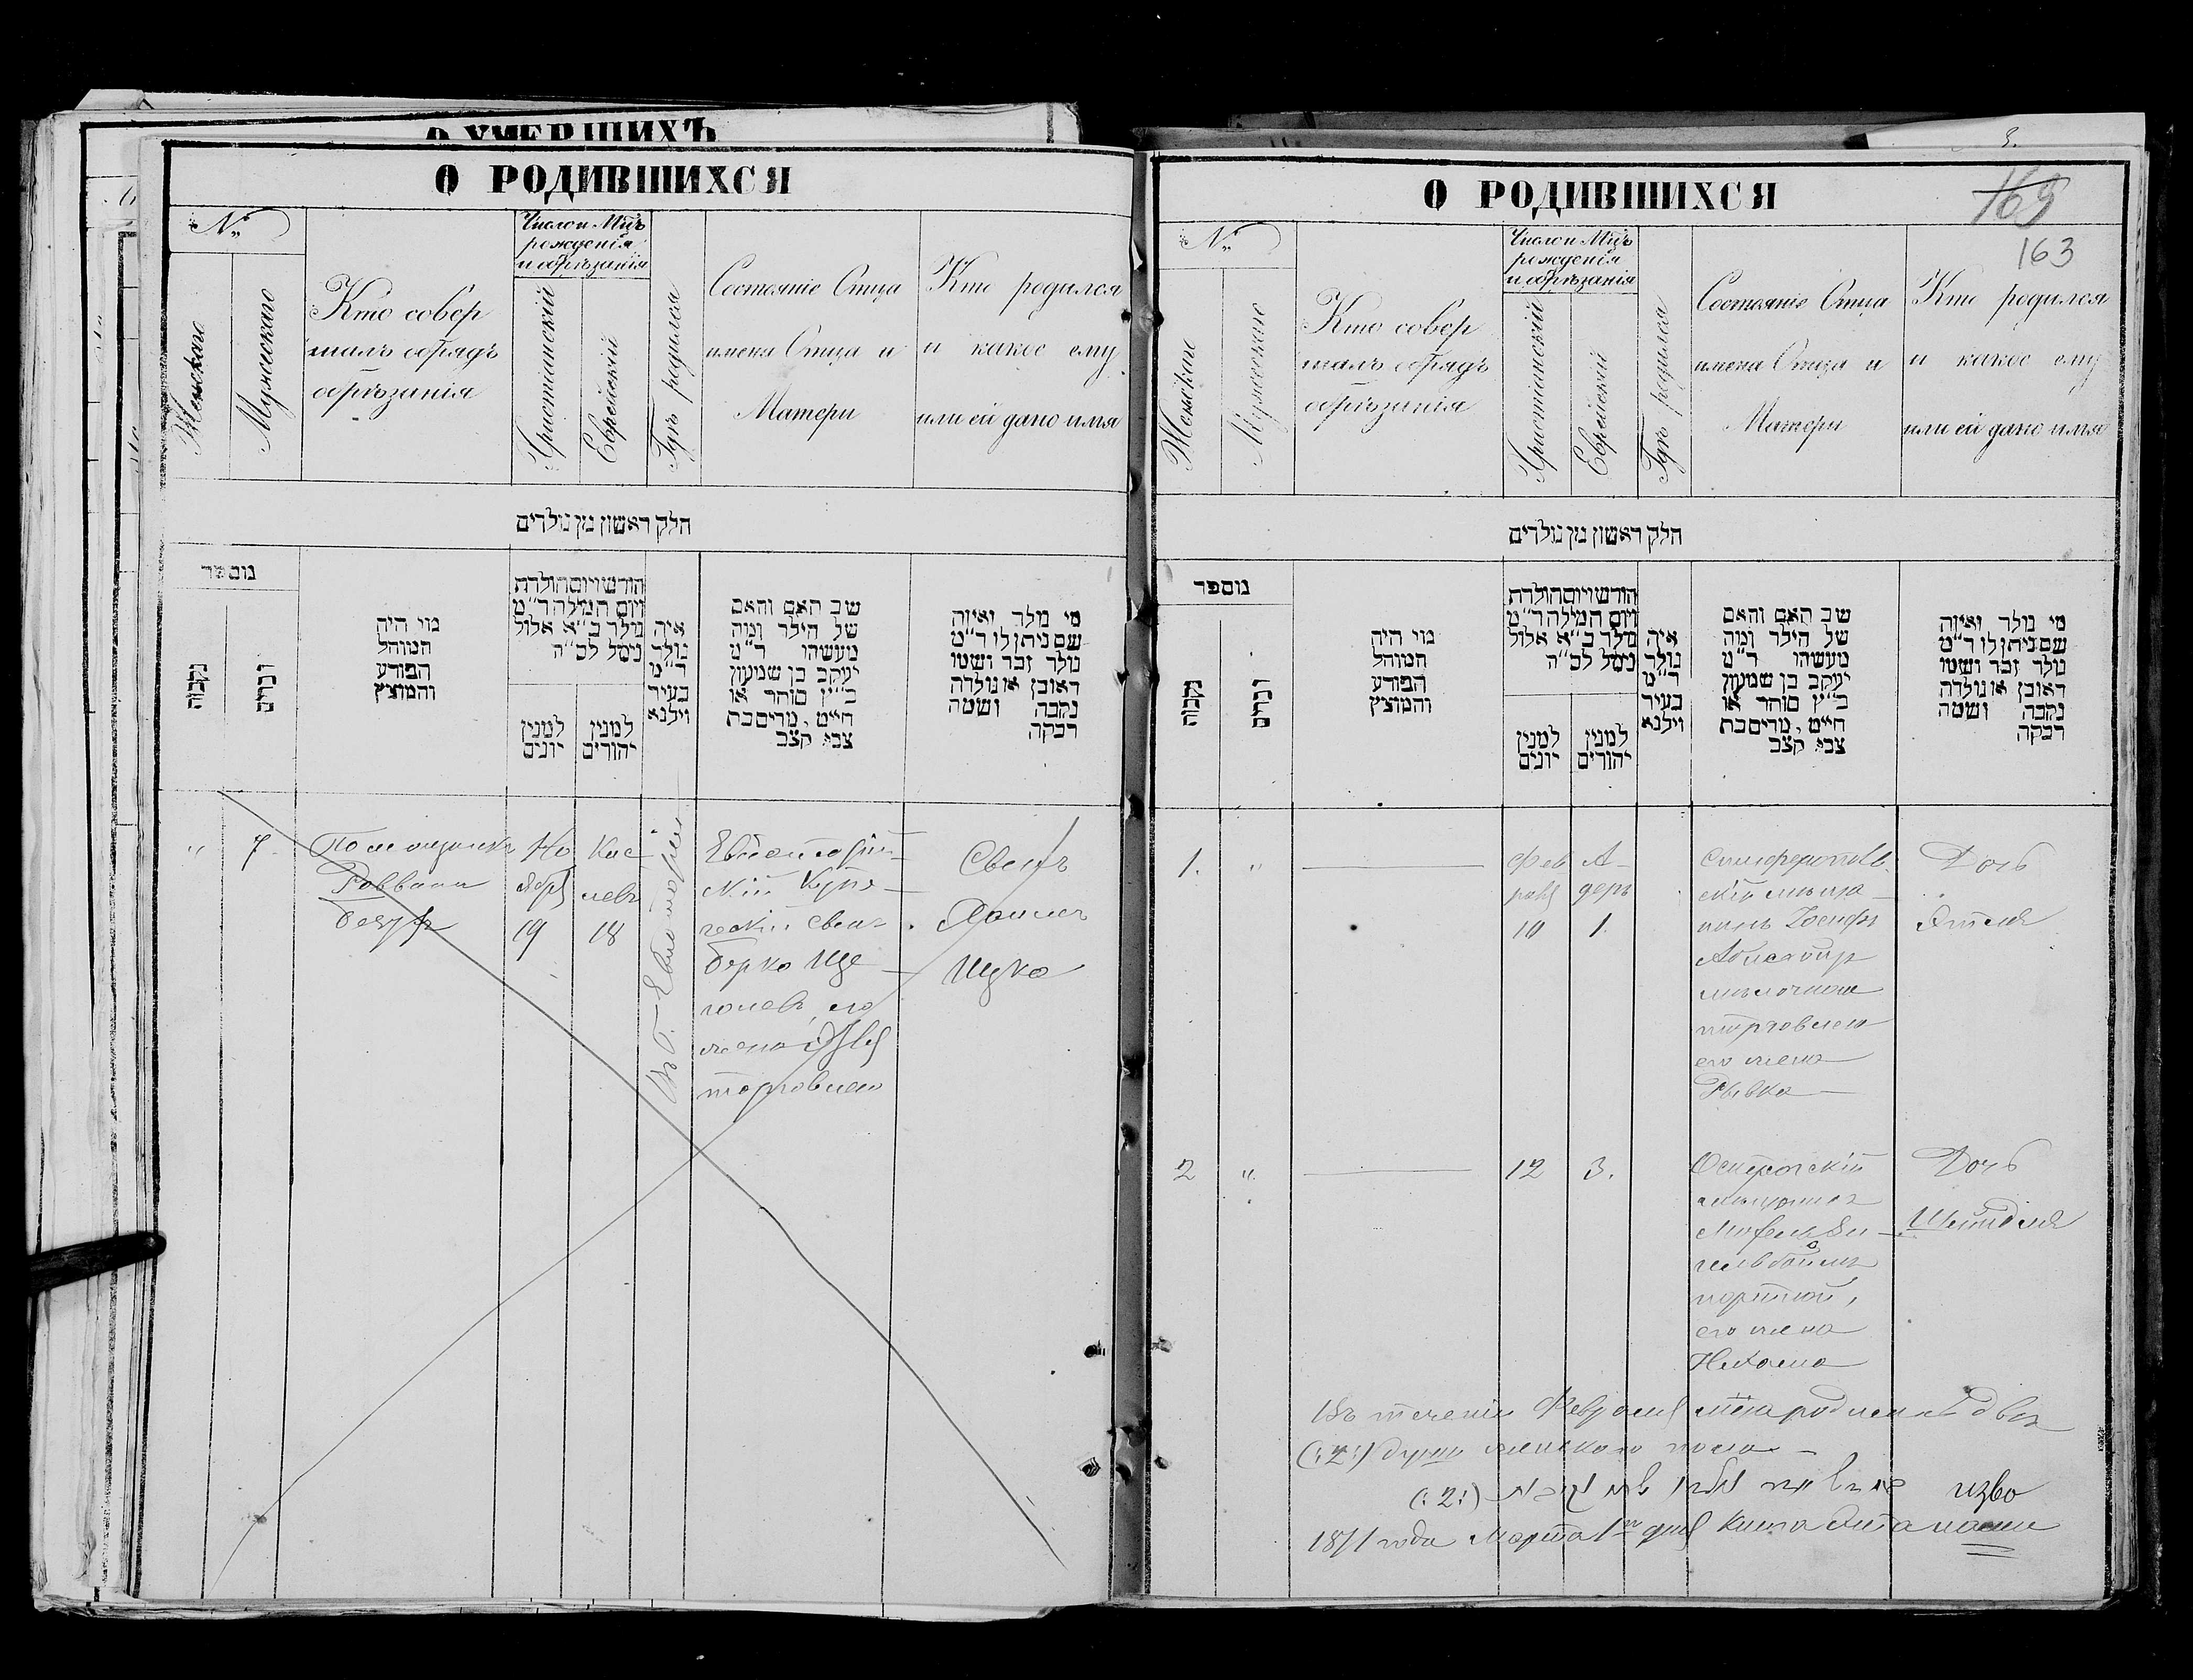 О РОДИВШИХСЯ
№
Женскаго
Мужескаго
Кто совер
шалъ обрядъ
обрѣзанія
Число и Мцъ
рожденія
и обрѣзанія
Христіанскій
Еврейскій
Гдѣ родился
Состояніе Отца
имена Отца и
Матери
Кто родился
и какое ему
или ей дано имя
חלק ראשון מן נולדים
נומפר
נקבות
זכרים
מי היה
המוהל
הפורע
והמוצץ
חודש ויום הולדת
ויום המילה ד״מ
נולד ב״א אלול
נימל לס״ה
למנין
יונים
למנין
יהודים
איה
נולד
ד״מ
בעיר
וילנא
שב האם והאם
של הילד ומה
מעשהו ד״מ
יעקב בן שמעון
כ״ץ סוחר או
חייט, מרים בת
צבי קצב
מי נולד ואיזה
שם ניתן לו ד״מ
נולד זכר ושמו
ראובן או נולדה
נקבה ושמה
רבקה
" 7
Но
ября
19
Кис
левъ
18
Евпаторій
скій Купе
ческій сынъ
Берко Ще
голевъ, его
жена
торговлею
Сынъ
Ицко
О РОДИВШИХСЯ
163
№
Женскаго
Мужескаго
Кто совер
шалъ обрядъ
обрѣзанія
Число и Мцъ
рожденія
и обрѣзанія
Христіанскій
Еврейскій
Гдѣ родился
Состояніе Отца
имена Отца и
Матери
Кто родился
и какое ему
или ей дано имя
חלק ראשון מן נולדים
נומפר
נקבות
זכרים
מי היה
המוהל
הפורע
והמוצץ
חודש ויום הולדת
ויום המילה ד״מ
נולד ב״א אלול
נימל לס״ה
למנין
יונים
למנין
יהודים
איה
נולד
ד״מ
בעיר
וילנא
שב האם והאם
של הילד ומה
מעשהו ד״מ
יעקב בן שמעון
כ״ץ סוחר או
חייט, מרים בת
צבי קצב
מי נולד ואיזה
שם ניתן לו ד״מ
נולד זכר ושמו
ראובן או נולדה
נקבה ושמה
רבקה
1. "
Фев
раля
10
А
деръ
1.
Симферополь
скій мѣща
нинъ Іосифъ
мѣлочною
торговлею
его жена
Рывка
Дочь
Этля
2 "
12
3.
Острожскій
мѣщанинъ
портной,
его жена
Нехама
Дочь
Шейндля
Въ теченіи Февраля мца родилось двѣ
(:2:) души женскаго пола
(:2:)
1871 года Марта 1го дня Книга эта нами